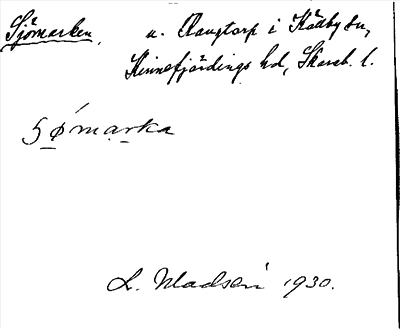 Sjömarken, u. Ravgtorp i Kådby sn,
Kinnefjärdings hd, Skarab. l.
sø´marka
L. Madsen 1930.